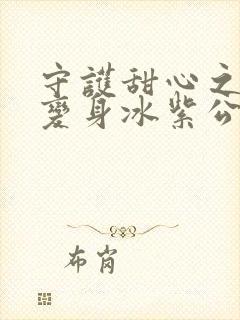 守護甜心之
變身冰紫公
布肖